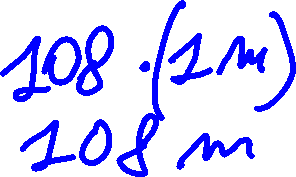 108 · (1 m)
108 m